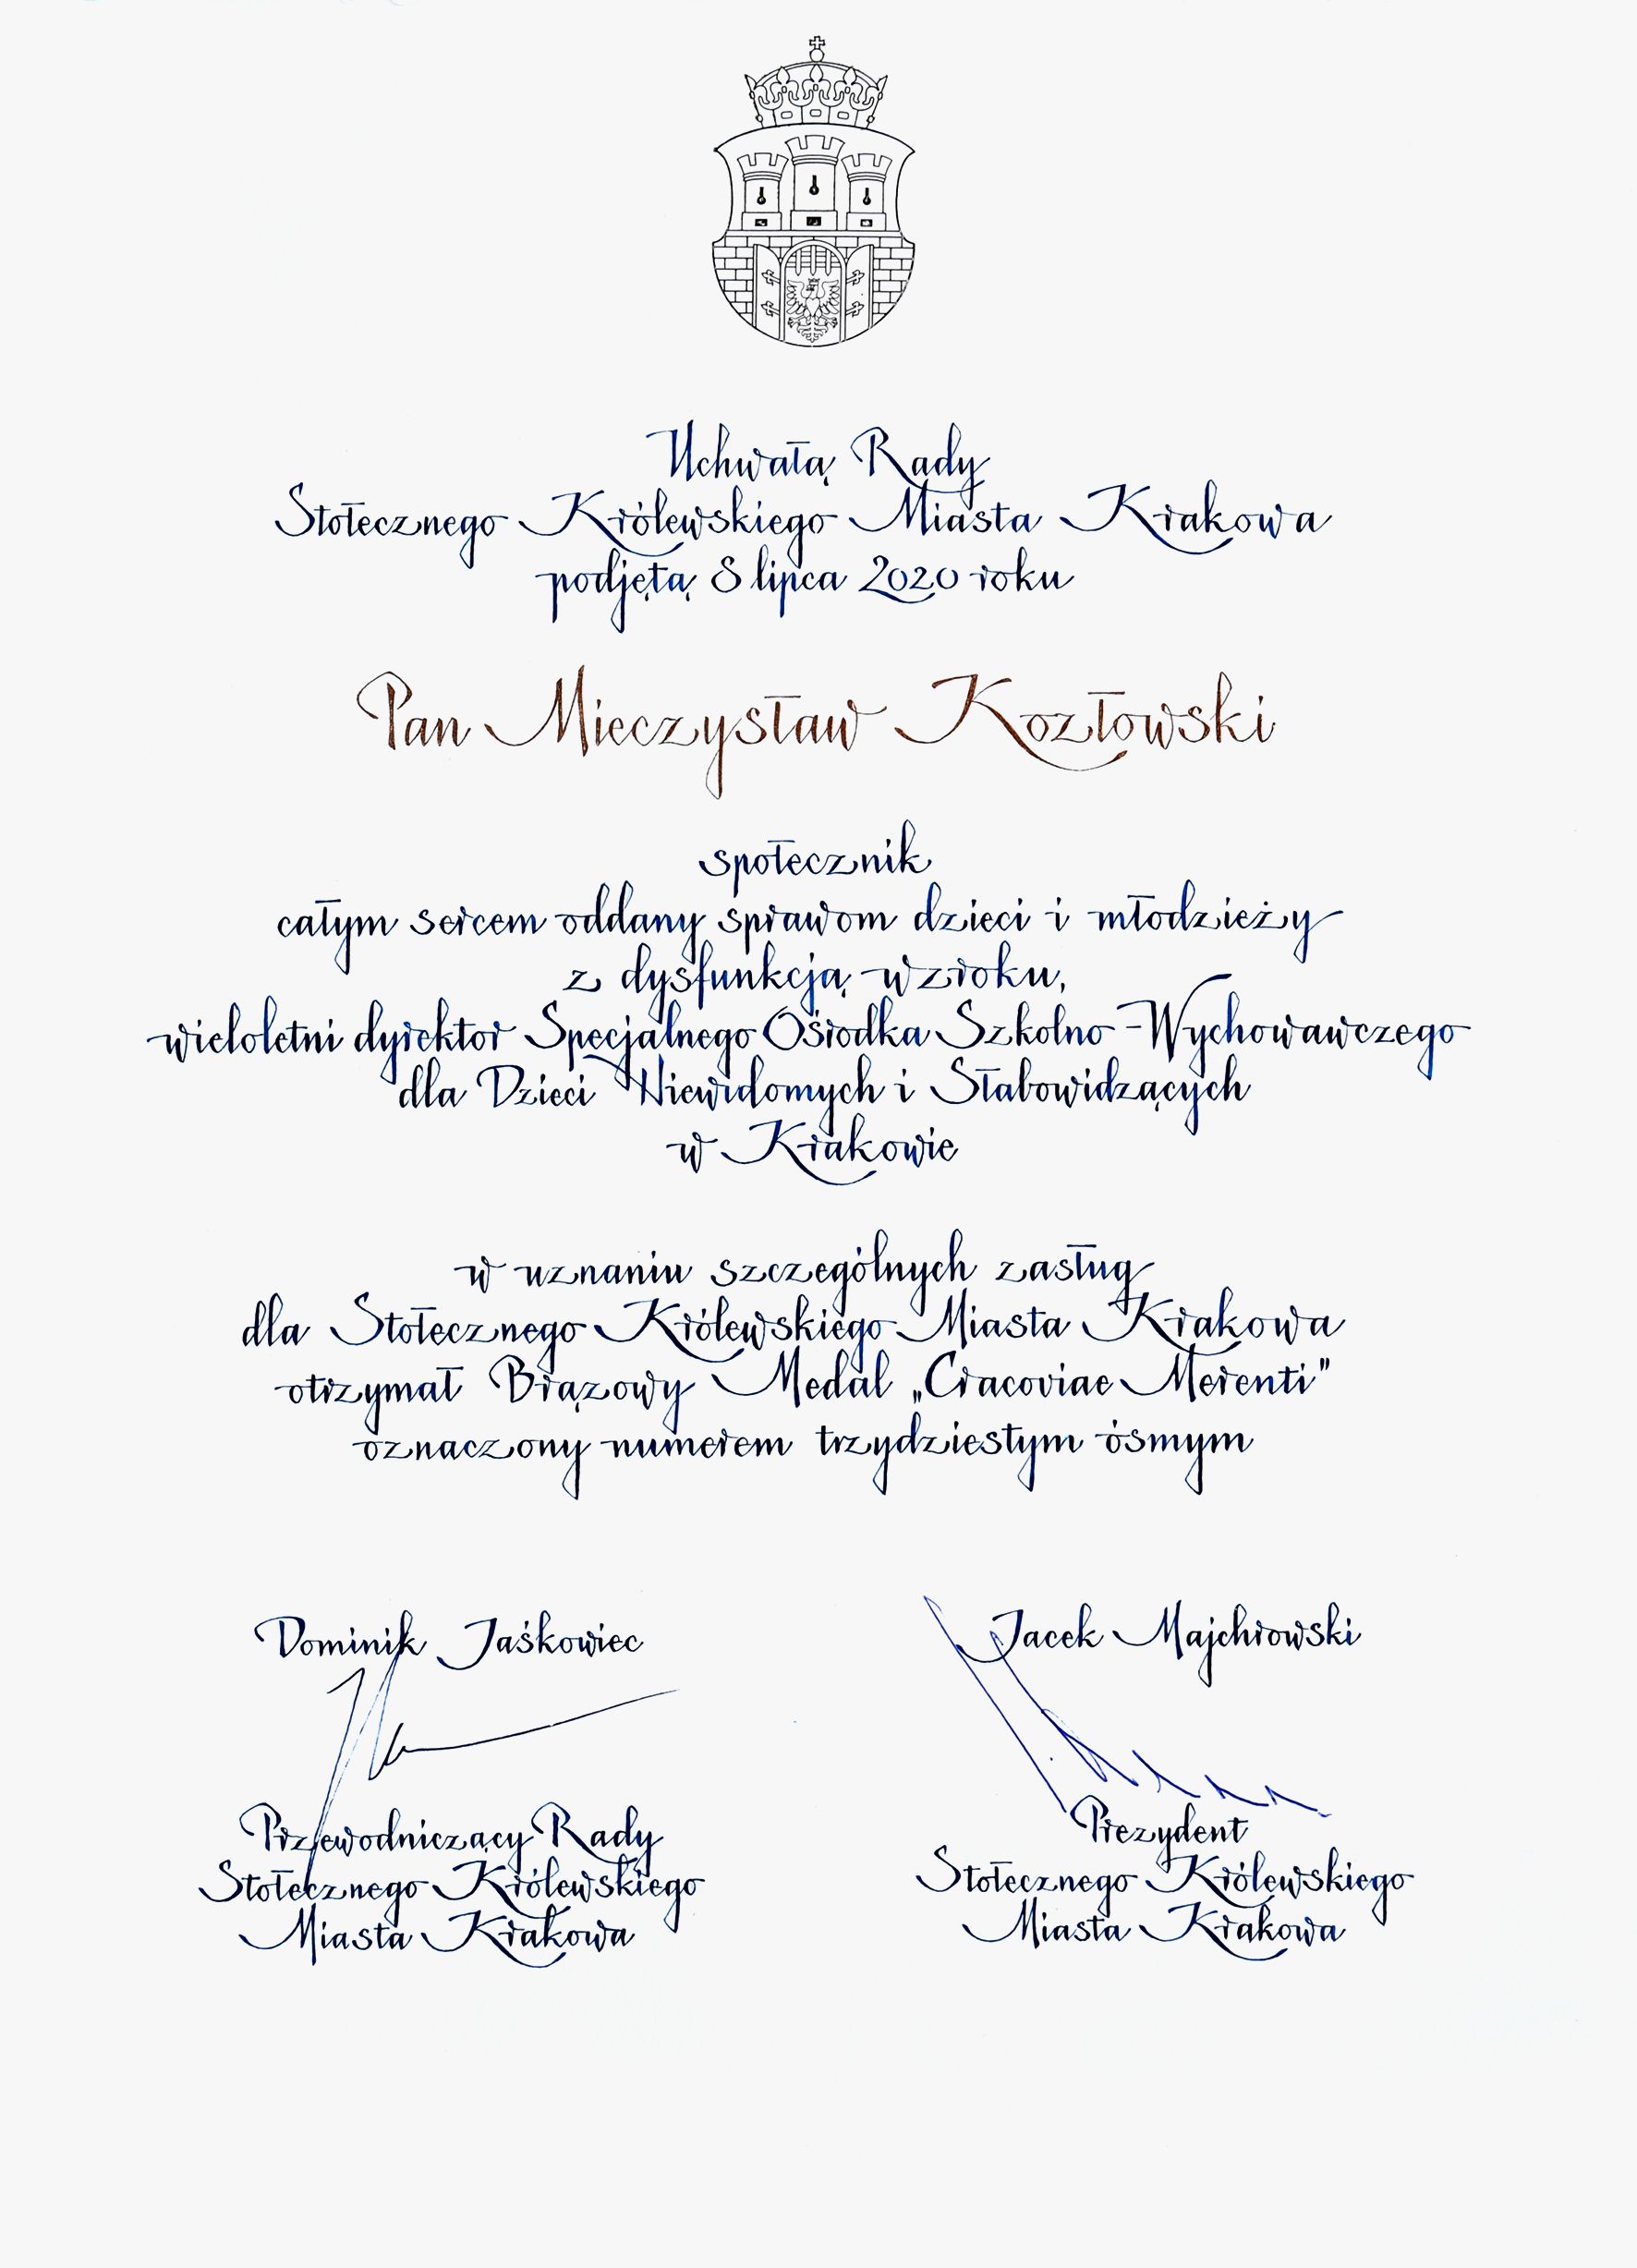 Uchwałą Rady
Stołecznego Królewskiego Miasta Krakowa
podjętą 8 lipca 2020 roku
Pan Mieczysław Kozłowski
społecznik
całym sercem oddany sprawom dzieci i młodzieży
z dysfunkcją wzroku,
wieloletni dyrektor Specjalnego Ośrodka Szkolno-Wychowawczego
dla Dzieci Niewidomych i Słabowidzących
w Krakowie
w uznaniu szczególnych zasług
dla Stołecznego Królewskiego Miasta Krakowa
otrzymał Brązowy Medal „Cracoviae Merenti”
oznaczony numerem trzydziestym ósmym
Dominik Jaśkowiec
Przewodniczący Rady
Stołecznego Królewskiego
Miasta Krakowa
Jacek Majchrowski
Prezydent
Stołecznego Królewskiego
Miasta Krakowa